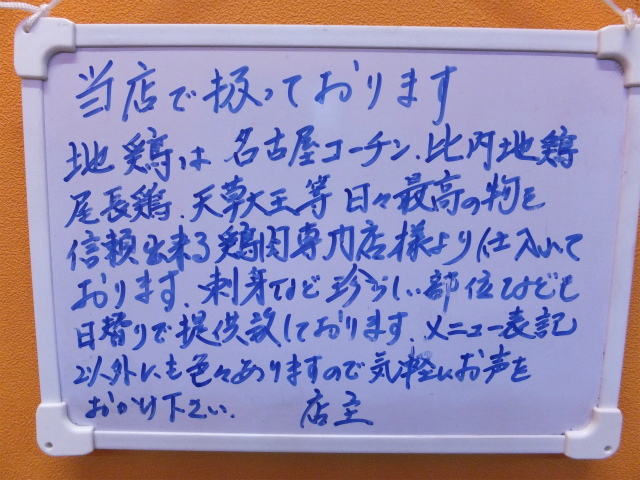 当店で扱っております
地鶏は 名古屋コーチン、比内地鶏
尾長鶏、天草大王等 日々最高の物を
信頼出来る鶏肉専門店様より仕入れて
おります、刺身など珍らしい部位なども
日替りで提供致しております、メニュー表記
以外にも色々ありますので気軽にお声を
おかけ下さい。 店主